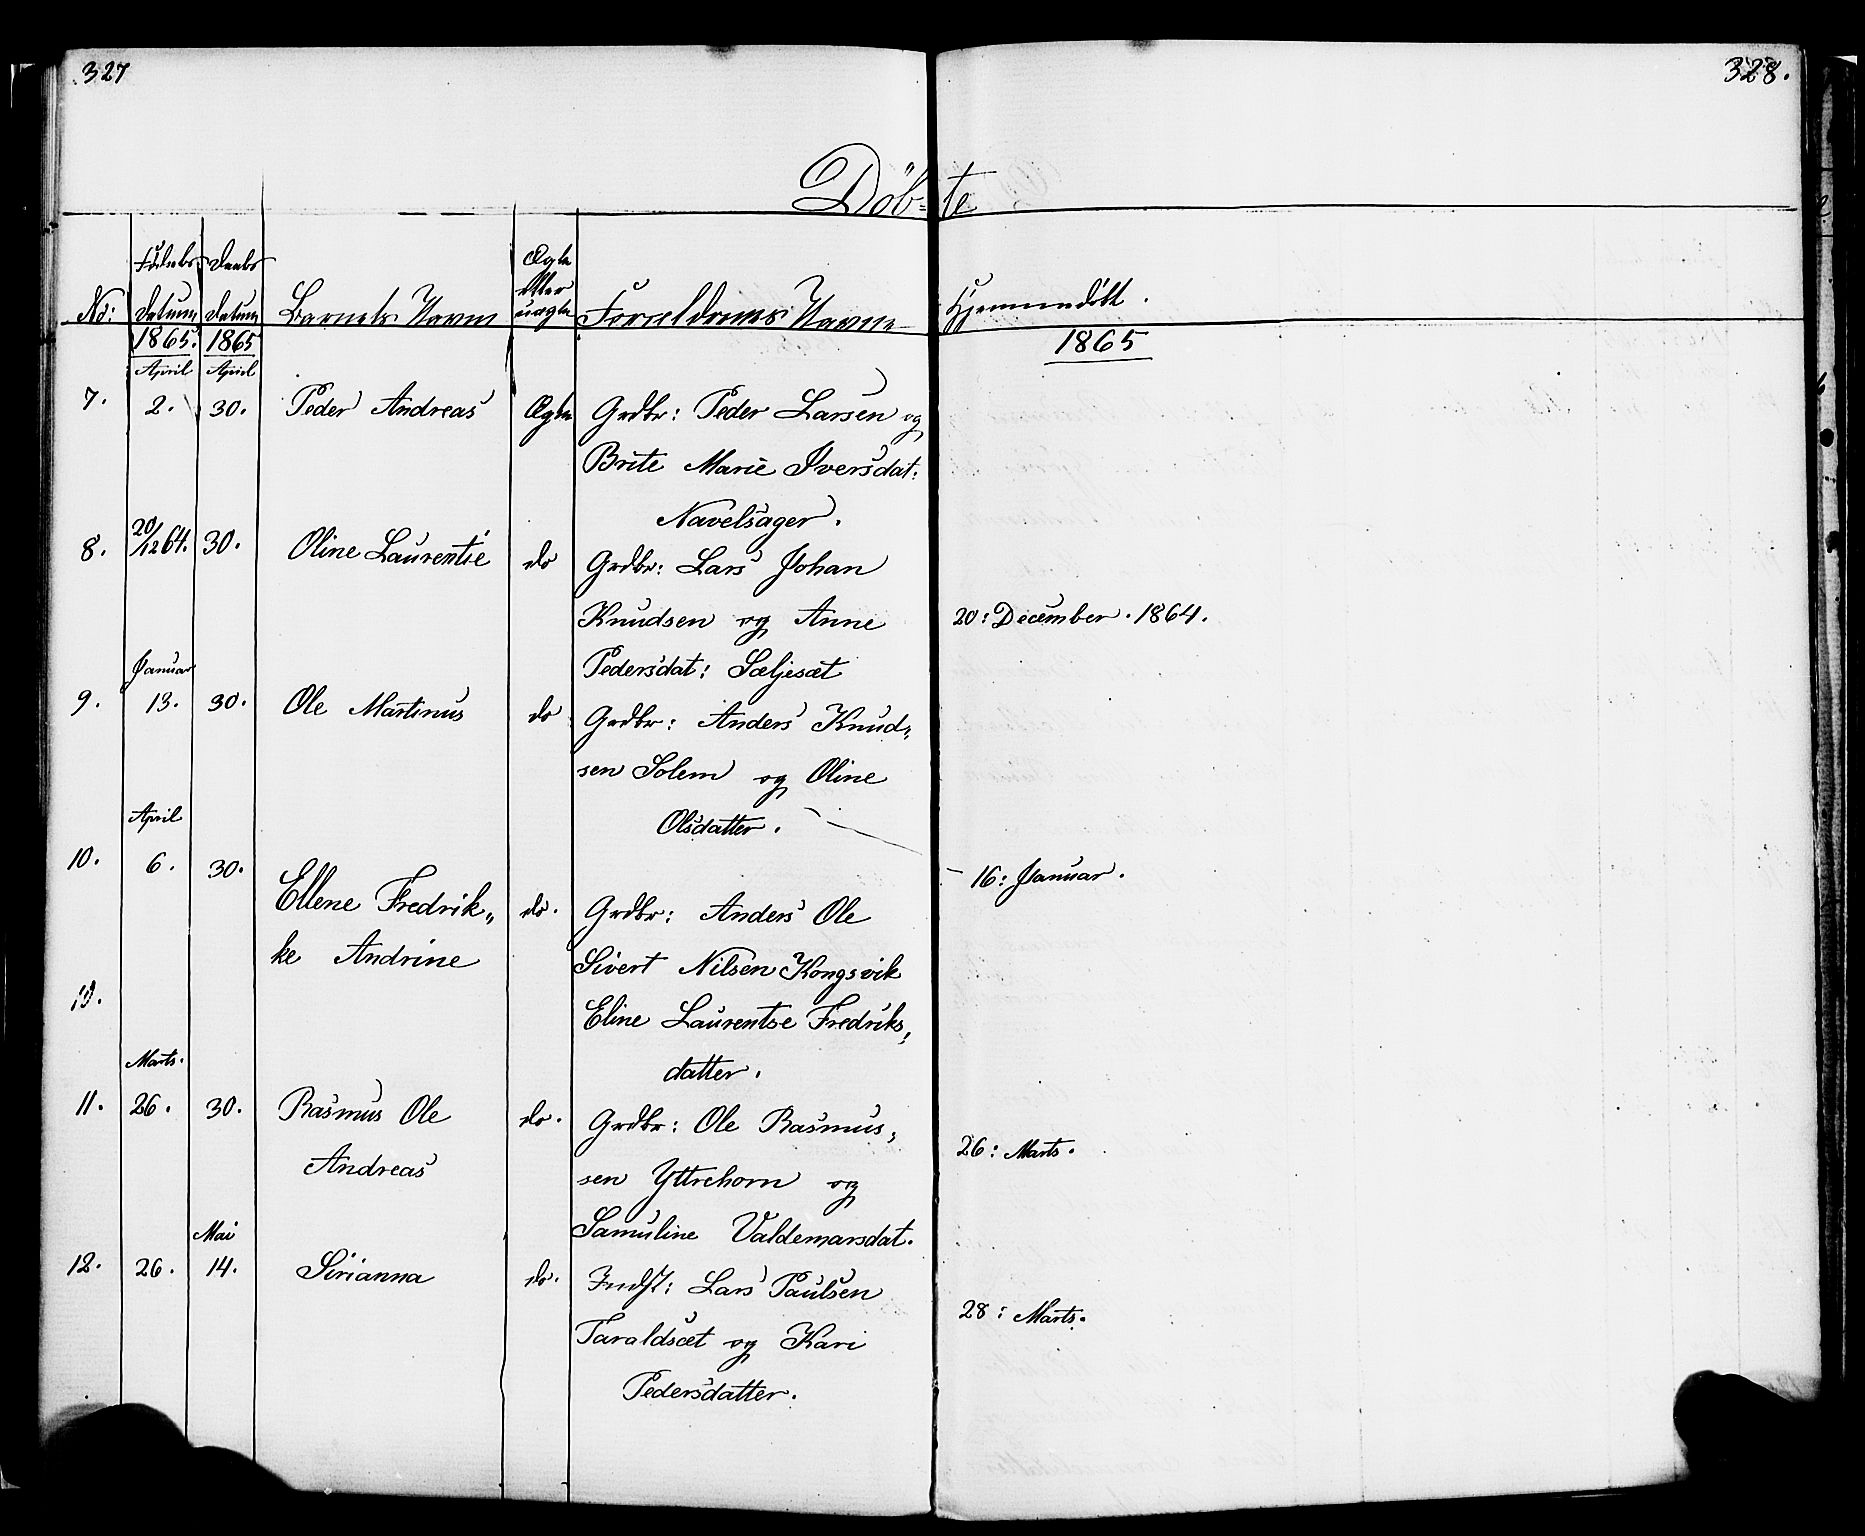 327
328.
Döb=te
No:
Födsels Datum
Daabs Datum
Barnets Navn
Ægte eller uægte
Forældrenes Navne
Hjemmedöbt.
1865. 1865 1865
April April
7. 2. 30. Peder Andreas Ægte Grdbr: Peder Larsen og
Brite Marie Iversdat:
Navelsager.
8. 20/12 64. 30. Oline Laurentie do Grdbr: Lars Johan
Knudsen og Anne 20: December. 1864.
Pedersdat: Sæljesæt
Januar
9. 13. 30. Ole Martinus do Grdbr: Anders Knud„
sen Solem og Oline
Olsdatter.
April
10. 6. 30. – 16: Januar.
Ellene Fredrik„ do. Grdbr: Anders Ole
ke Andrine Sivert Nilsen Kongsvik
Eline Laurentse Fredriks„
datter.
Marts.
11. 26. 30. Rasmus Ole do. Grdbr: Ole Rasmus„
26: Marts.
Andreas sen Yttrehorn og
Samuline Valdemarsdat.
Mai
12. 26. 14. Sirianna do. Indst: Lars Paulsen
28: Marts.
Taraldsæt og Kari
Pedersdatter.